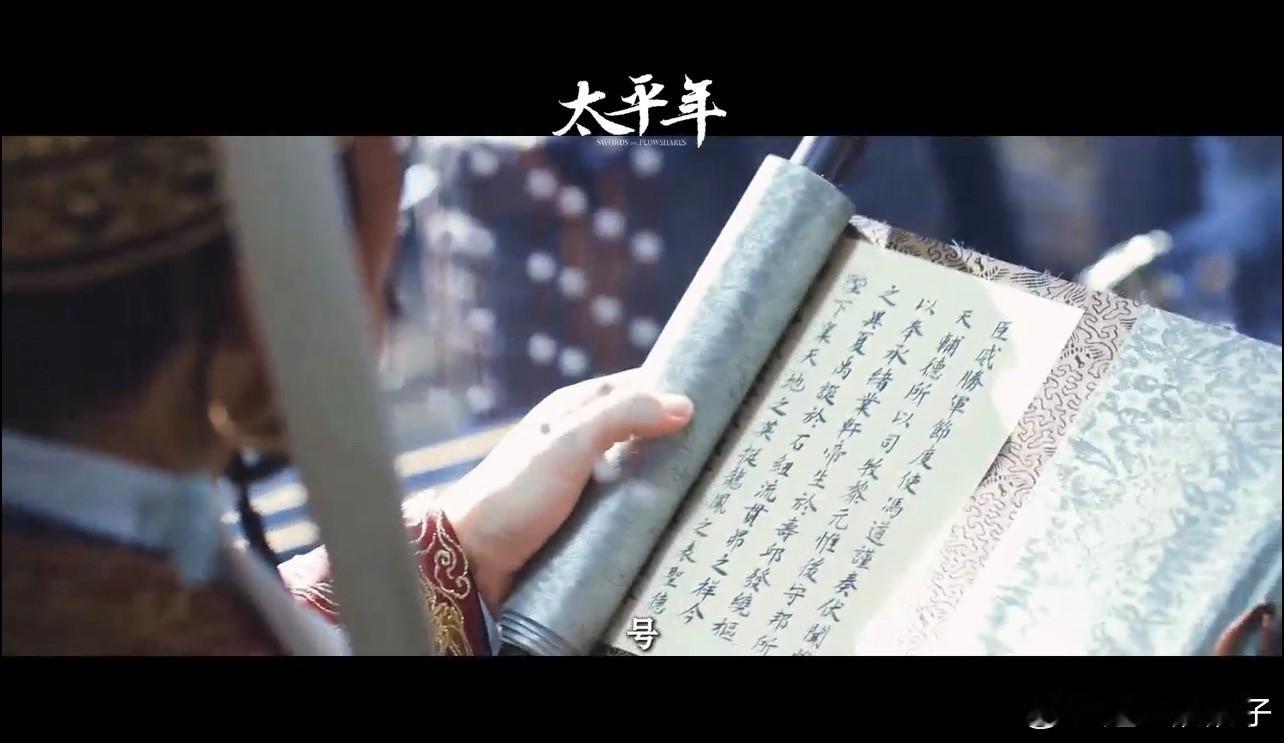 太平年
SWORDS INTO PLOWSHARES
臣威勝軍節度使馮道謹奏伏聞
天輔德所以司牧黎元惟後守邦所
以奉承緒業軒帝生於壽邱發繞樞
之異夏禹誕於石紐流貫昴之祥今
下天地之英挺龍鳳之表聖德
号
子